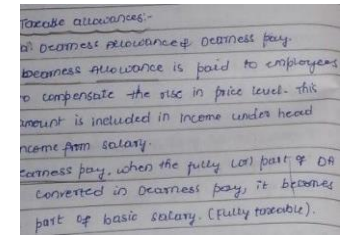 Taxable allowances:-
a) Dearness Allowance & Dearness pay.
Dearness Allowance is paid to employees
to compensate the rise in price level. This
amount is included in Income under head
income from salary.
Dearness pay, when the fully (or) part of DA
converted in Dearness pay, it becomes
part of basic salary. (Fully taxable).